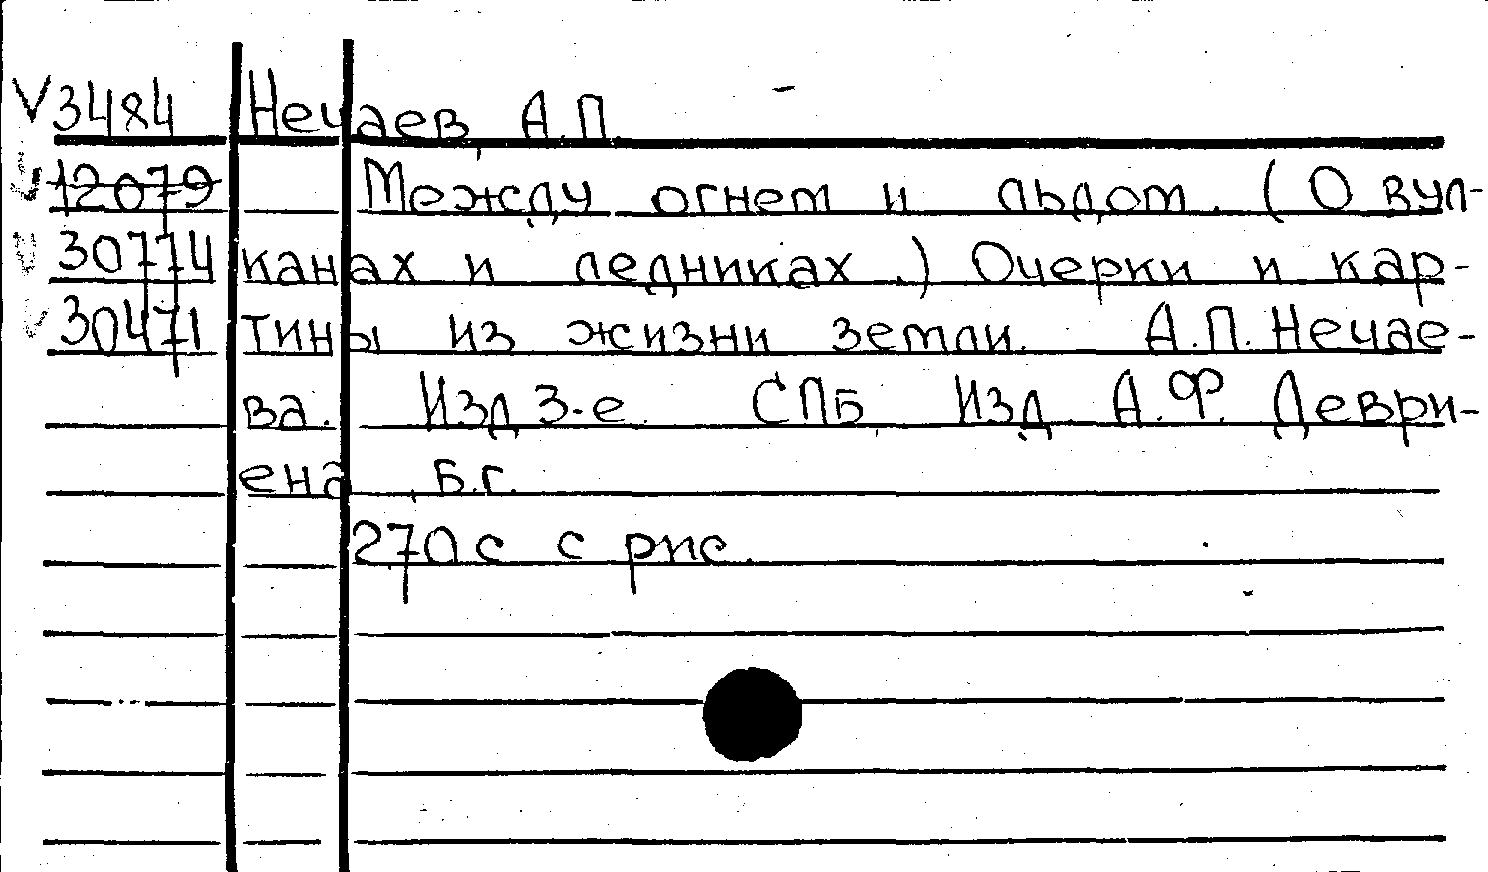 V 3484 Нечаев, А.П.
12079 Между огнем и льдом. (О вул-
30774 канах и ледниках.) Очерки и кар-
30471 тины из жизни земли. А.П. Нечае-
ва. Изд 3-е. СПБ, Изд. А.Ф. Деври-
ена, Б.г.
270 с с рис.